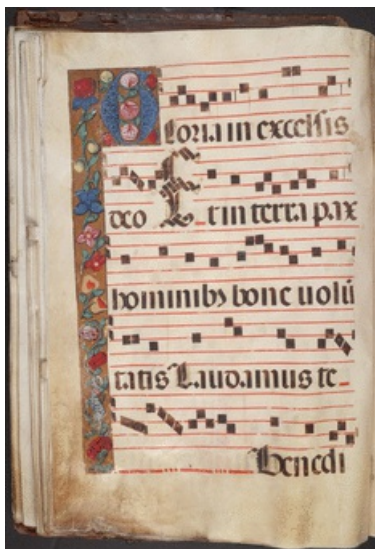 Gloria in excelsis
deo Et in terra pax
hominibꝫ bone uolū
tatis Laudamus te
Benedi